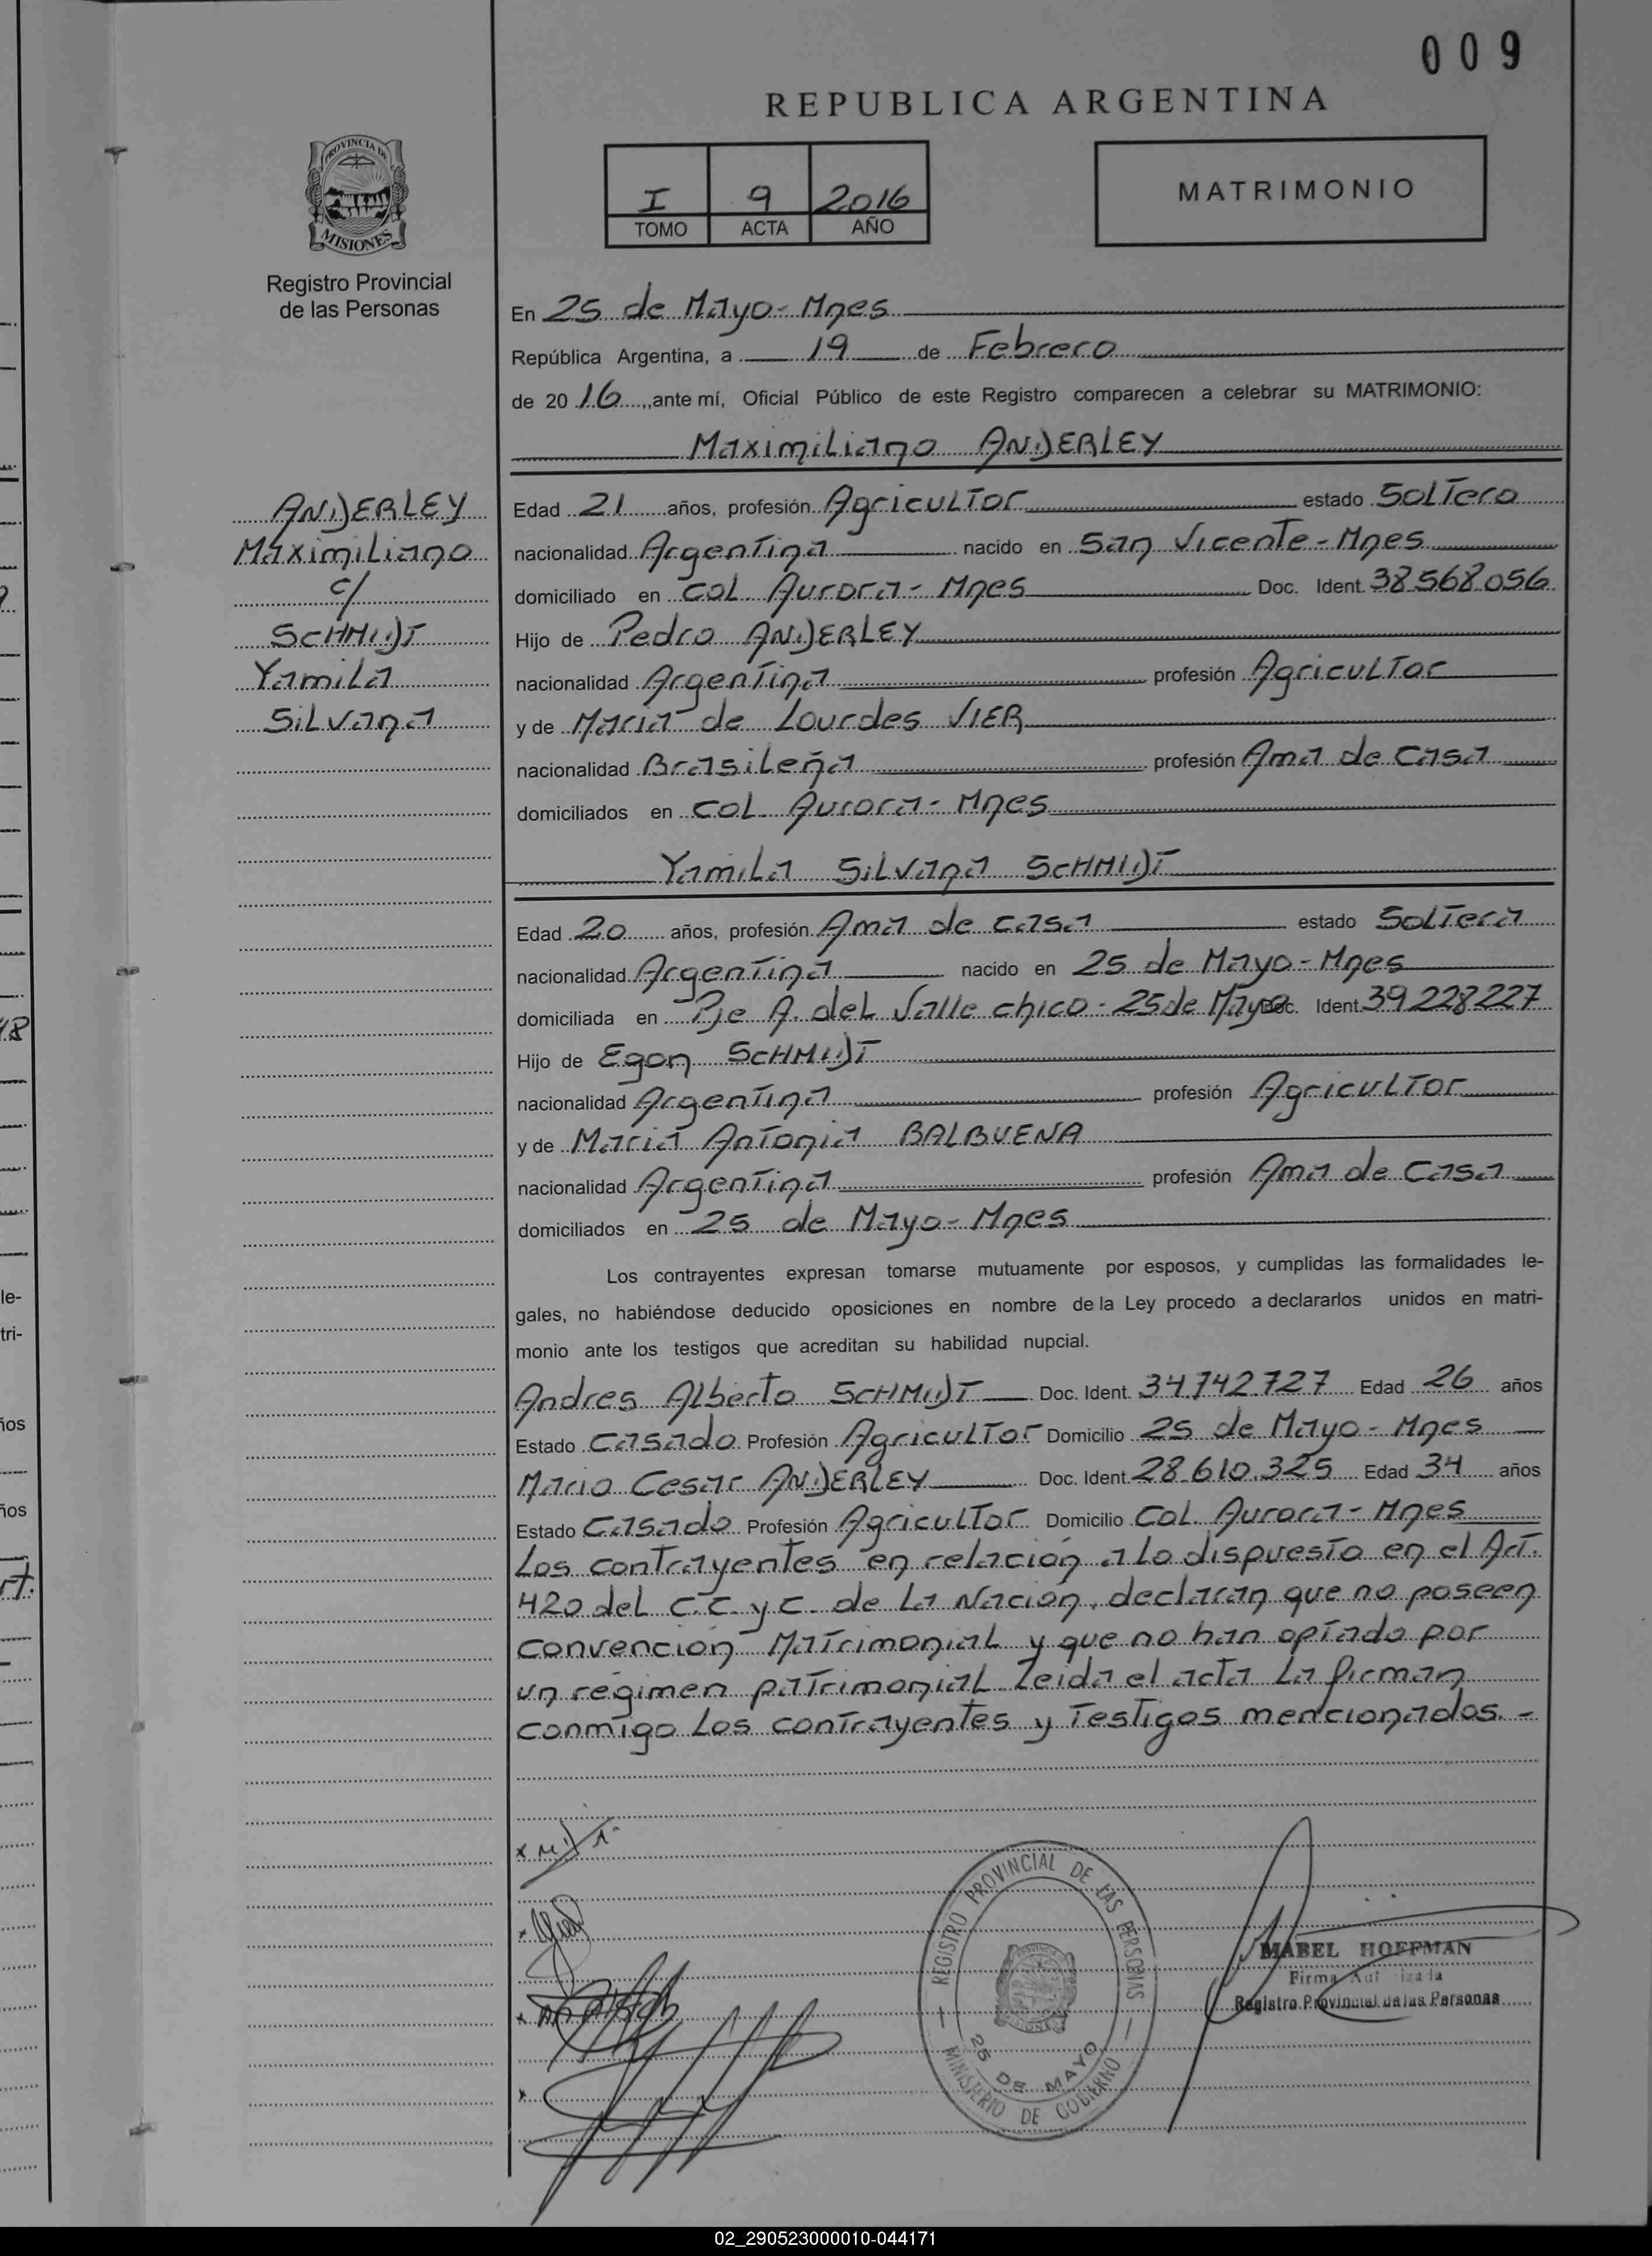 009
REPUBLICA ARGENTINA
I 9 2016
TOMO ACTA AÑO
MATRIMONIO
PROVINCIA DE
MISIONES
Registro Provincial
de las Personas
En 25 de Mayo - Mnes
República Argentina, a 19 de Febrero
de 20 16, ante mí, Oficial Público de este Registro comparecen a celebrar su MATRIMONIO:
Maximiliano ANDERLEY
ANDERLEY
Maximiliano
c/
SCHMIDT
Yamila
Silvana
Edad 21 años, profesión Agricultor estado Soltero
nacionalidad Argentina nacido en San Vicente - Mnes
domiciliado en Col. Aurora - Mnes Doc. Ident. 38.568.056
Hijo de Pedro ANDERLEY
nacionalidad Argentina profesión Agricultor
y de Maria de Lourdes VIER
nacionalidad Brasileña profesión Ama de Casa
domiciliados en Col. Aurora - Mnes
Yamila Silvana SCHMIDT
Edad 20 años, profesión Ama de casa estado Soltera
nacionalidad Argentina nacido en 25 de Mayo - Mnes
domiciliada en Pje A. del Valle chico - 25 de Mayo Doc. Ident. 39.228.227
Hijo de Egon SCHMIDT
nacionalidad Argentina profesión Agricultor
y de Maria Antonia BALBUENA
nacionalidad Argentina profesión Ama de Casa
domiciliados en 25 de Mayo - Mnes
Los contrayentes expresan tomarse mutuamente por esposos, y cumplidas las formalidades le-
gales, no habiéndose deducido oposiciones en nombre de la Ley procedo a declararlos unidos en matri-
monio ante los testigos que acreditan su habilidad nupcial.
Andres Alberto SCHMIDT Doc. Ident. 34.742.727 Edad 26 años
Estado Casado Profesión Agricultor Domicilio 25 de Mayo - Mnes
Mario Cesar ANDERLEY Doc. Ident. 28.610.325 Edad 34 años
Estado Casado Profesión Agricultor Domicilio Col. Aurora - Mnes
Los contrayentes en relación a lo dispuesto en el Art.
420 del C.C. y C. de la Nación, declaran que no poseen
convención Matrimonial y que no han optado por
un régimen patrimonial. Leida el acta la firman
conmigo los contrayentes y testigos mencionados. -
REGISTRO PROVINCIAL DE LAS PERSONAS
25 DE MAYO
MINISTERIO DE GOBIERNO
MABEL HOFFMAN
Firma Autorizada
Registro Provincial de las Personas
02_290523000010-044171